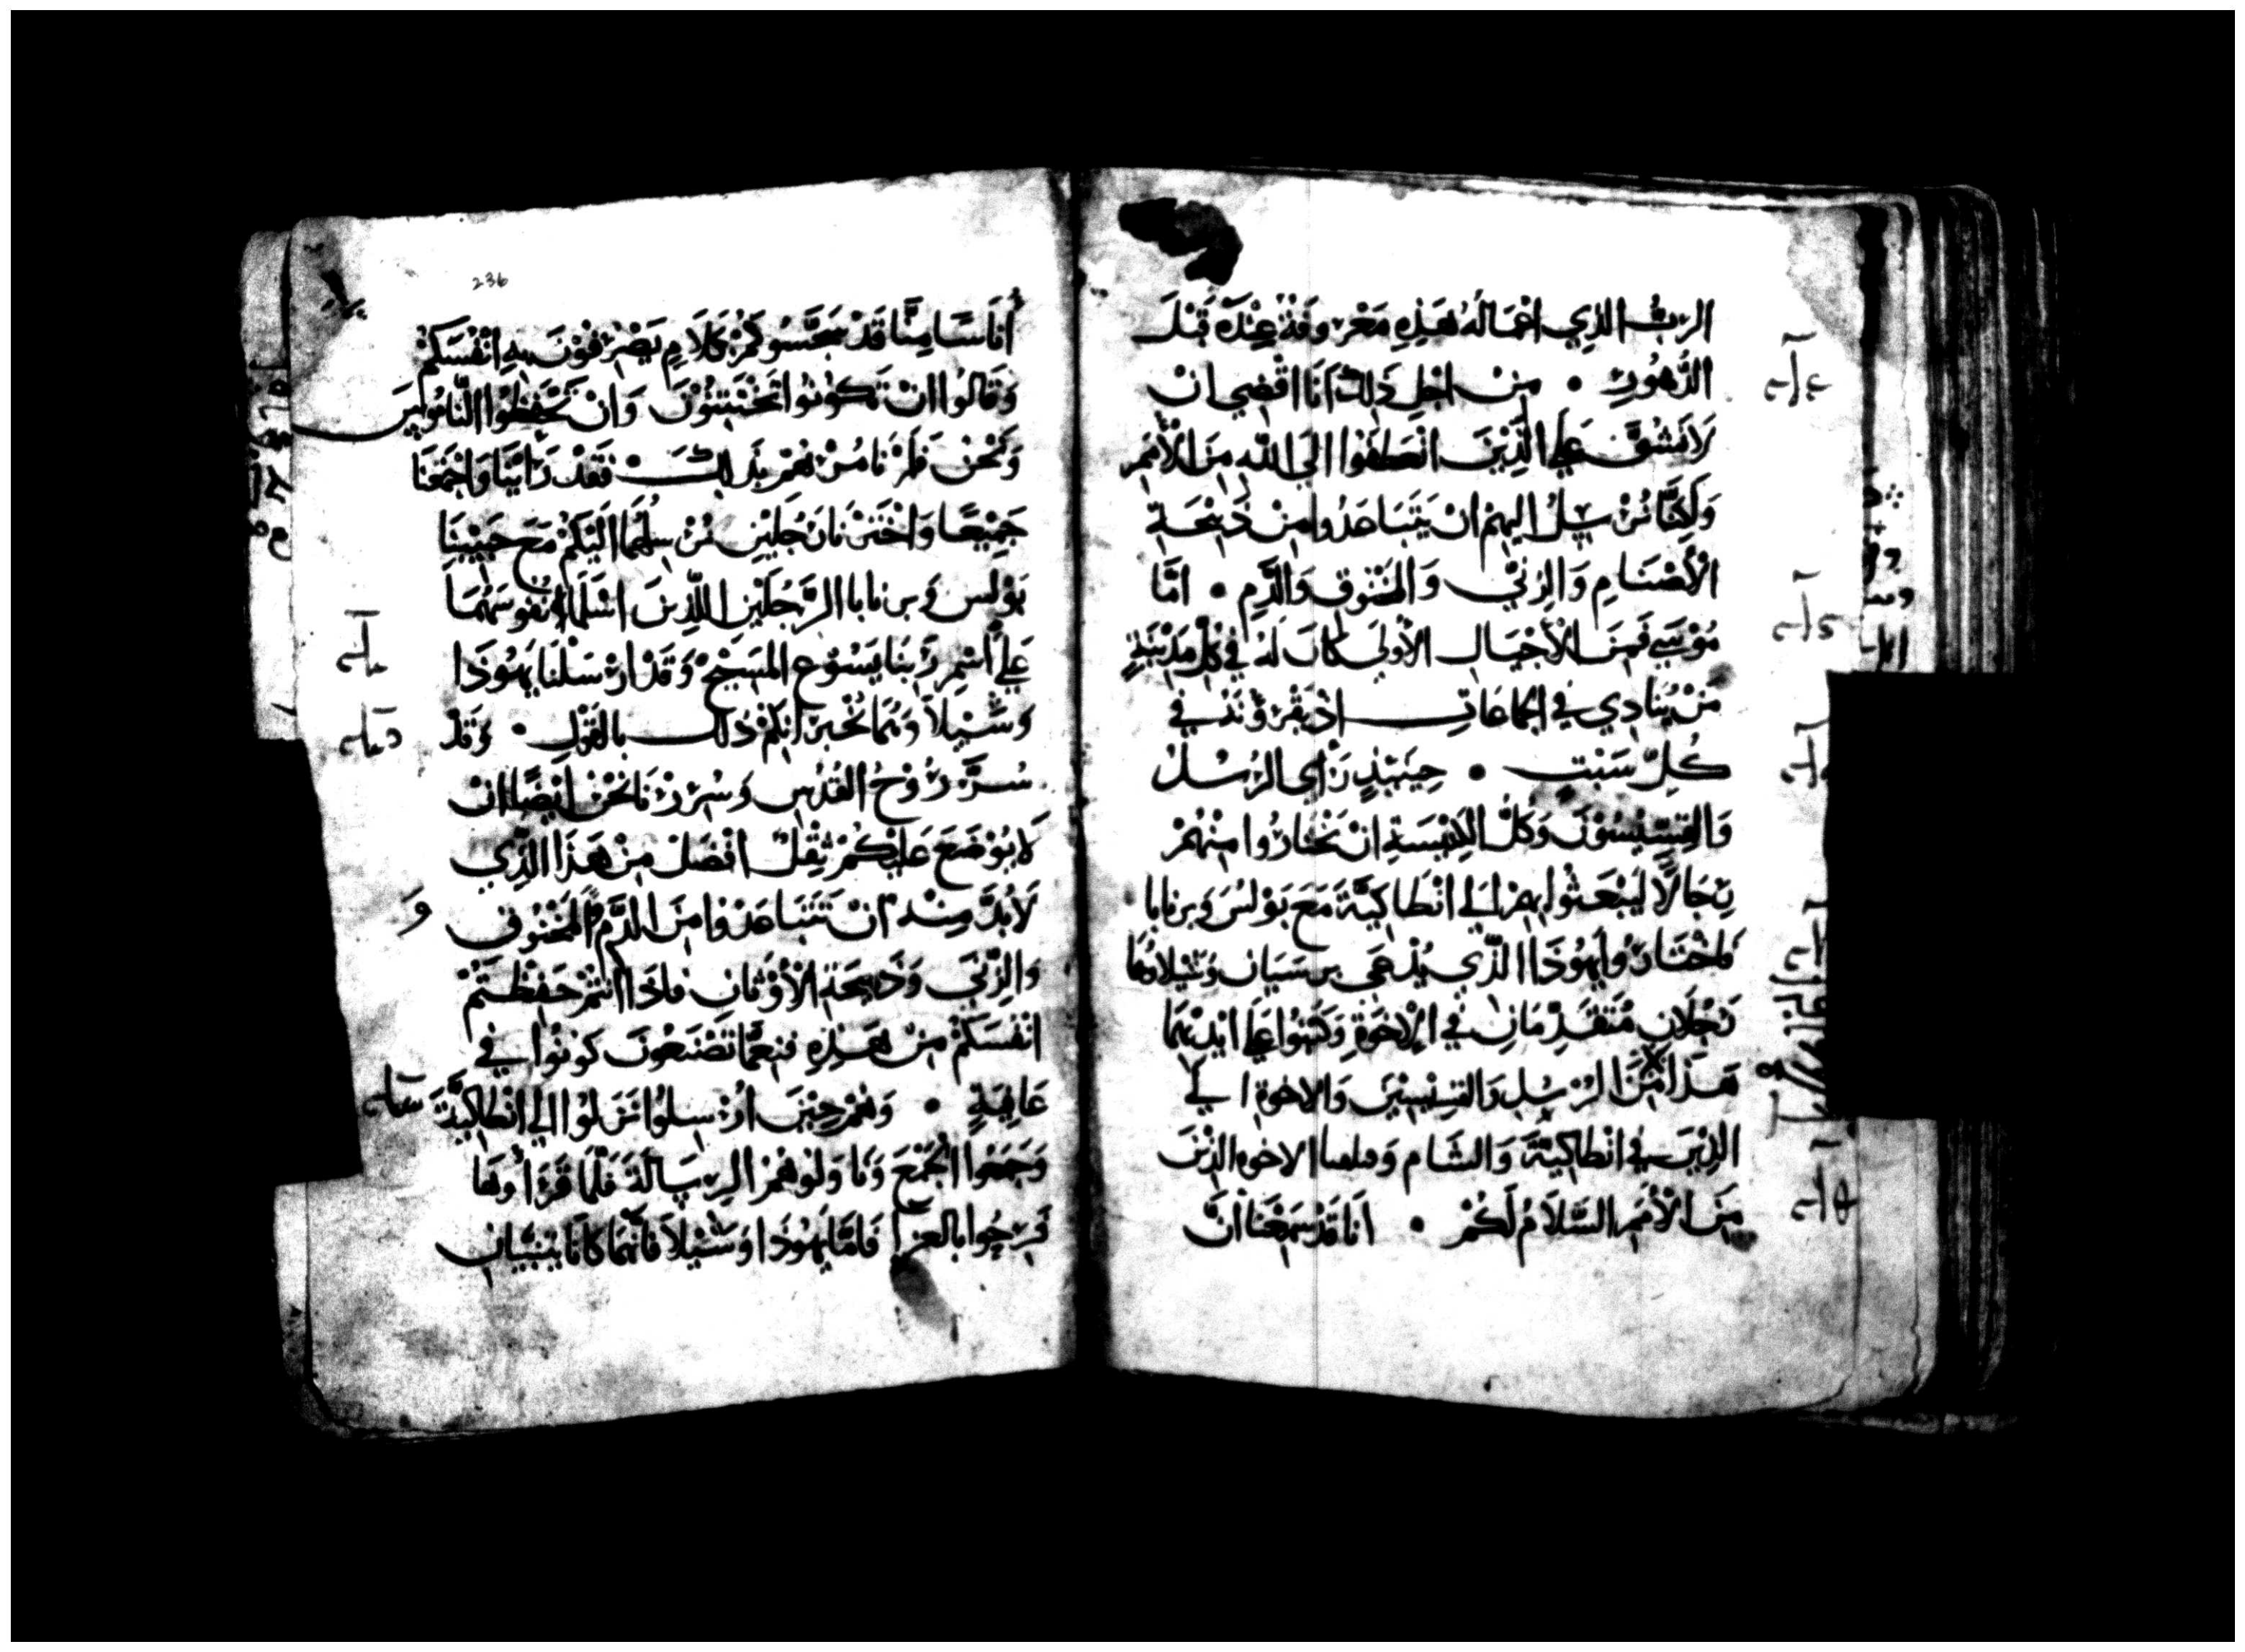 الرَبُّ الذِي اعْمَالهُ هَذِهِ مَعْروفَة عِنْدَهُ قَبْلَ
الدُّهُورِ • مِنْ اجْلِ ذَلِكَ انَا اقْضِي انْ
لَا نَشُقَّ عَلي الَّذِيْنَ انْعَطَفُوا الَي اللّه مِنَ الأُمَمِ
وَلَكِنَّا نُرْسِلُ اليهِمْ انْ يَتَبَاعَدُوا مِنْ ذَبِيْحَةِ
الْأصْنَامِ وَالزِنَي وَالمَخْنُوقِ وَالدَّمِ • امَّا
مُوْسَي فَمِنَ الْأَجْيَالِ الأُولَي كَانَ لَهُ فِي كُلِّ مَدِيْنَةٍ
مَنْ يُنَادِي فِي الجَمَاعَاتِ اذْ يَقْرَوُنَهُ فِي
كُلِّ سَبْتٍ • حِيْنَئِذٍ رَأَي الرُسُلُ
وَالقِسِّيْسُوْنَ وَكُلُّ الكَنِيْسَةِ انْ يَخْتَارُوا مِنْهُمْ
رِجَالًا لِيَبْعَثُوا بِهِمْ الَي انْطَاكِيَّةَ مَعَ بَوْلسَ وَبرنَابَا
فَاخْتَارُوا يَهُوْذَا الَّذِي يُدْعَى برسَبَان وَشِيْلَا وَهُمَا
رَجُلَانِ مُتَقَدِّمَانِ فِي الْاخوَةِ وَكَتَبُوا عَلَي ايْدِيْهِمَا
هَذَا مِنَ الرُسُلِ وَالقِسِّيْسِيْنَ وَالاخوَة الَي
الذِيْنَ فِي انْطَاكِيَّةَ وَالشَامِ وَ الاخوَه الذِيْنَ
مِنَ الْأُمَمِ السَّلَامُ لَكُمْ • انَا قَدْ سَمِعْنَا انَّ
236
أُنَاسًا مِنَّا قَدْ سَجَّسُوكُمْ بِكَلَامٍ يَصْرِفُوْنَ بِهِ انْفُسَكُمْ
وَقَالُوا انْ تَكُوْنُوا تَخْتَتِنُوْنَ وَانْ تَحْفَظُوا النَّامُوسَ
وَنَحْنُ فَلَمْ نَامُرْهُمْ بِذَلِكَ فَقَدْ رَأَيْنَا وَاجْتَمَعْنَا
جَمِيْعًا وَاخْتَرْنَا رَجُلَيْنِ نُرْسِلُهُمَا الَيْكُمْ مَعَ حَبِيْبَيْنَا
بَوْلسَ وَبرنَابَا الرَّجُلَيْنِ اللَّذَيْنِ اسْلَمَا نُفُوْسَهُمَا
عَلَي اسْمِ رَبِّنَا يَسُوْع المَسِيْحِ وَقَدْ ارْسَلْنَا يَهُوْذَا
وَشِيْلَا وَهُمَا يُخْبِرَانِكُمْ ذَلِكَ بِالقَوْلِ • وَقَدْ
سُرَّ رُوْحُ القُدُسِ وَسُرِرْنَا نَحْنُ ايْضًا انْ
لَا يُوْضَعَ عَلَيْكُمْ ثِقْلٌ افْضَلَ مِنْ هَذَا الَّذِي
لَابُدَّ مِنْهُ انْ تَتَبَاعَدُوا مِنَ الدَّمِ وَالمَخْنُوقِ
وَالزِّنَي وَذَبِيْحَةِ الْأَوْثَانِ فَاذَا انْتُمْ حَفِظْتُمْ
انْفُسَكُمْ مِنْ هَذِهِ فَنِعِمَّا تَصْنَعُونَ كونُوا فِي
عَافِيَةٍ • وَهُمْ حِيْنَ ارْسِلُوا نَزَلُوا الَي انْطَاكِيَّةَ
وَجَمَعُوا الجَمْعَ وَنَاوَلُوْهُمْ الرِسَالَةَ فَلَمَّا قَرَأُوهَا
فَرِحُوا بِالعَزَا فَامَّا يَهُوْذَا وَشِيْلَا فَانَّهُمَا كَانَا نَبِيَّيَان